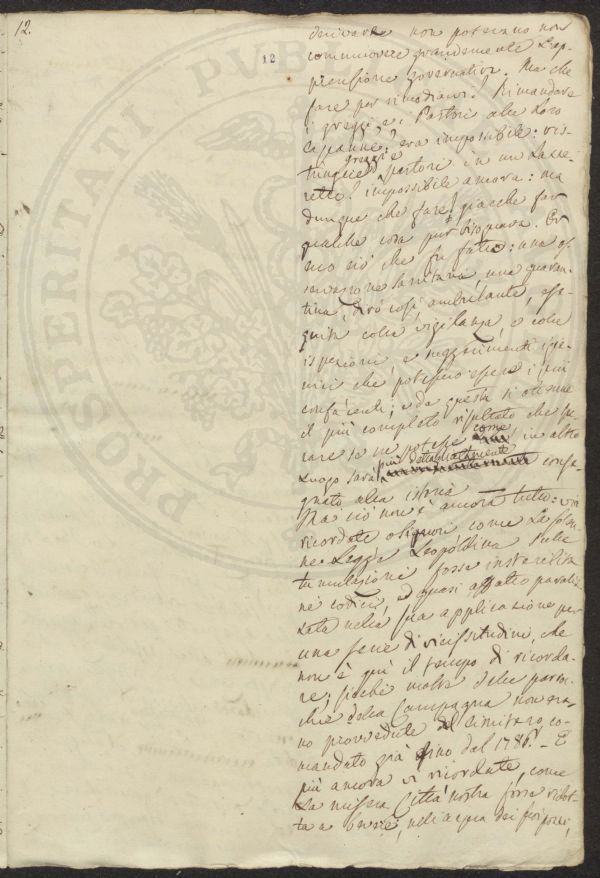 12.
12
PROSPERITATI PUBLICAE
derivare non potevano non
commuovere grandemente l'ap-
prensione governativa. Ma che
fare per rimediarvi? Rimandare
i greggi e i Pastori alle loro
Capanne? era impossibile: ris-
greggi e
tringere pastori in un Lazze-
retto? impossibile ancora: ma
dunque che fare? giacche far
qualche cosa pur bisognava. Ec-
covi ciò che fu fatto: una os-
servazione sanitaria una quaran-
tina, dirò così, ambulante, ese-
guita colla vigilanza, e colle
ispezioni e suggerimenti igie-
nici che potessero essere i più
confacenti; e da questa si ottenne
il più completo risultato che spe-
rare se ne potesse come in altro
più dettagliatamente
luogo sarà conse-
gnato alla istoria.
Ma ciò non è ancora tutto: vi
ricordate o Signori come la solen-
ne Legge Leopoldina sulle
tumulazioni fosse insterilita
nei codici, ed quasi affatto paraliz-
zata nella sua applicazione per
una serie di vicissitudini, che
non è quì il tempo di ricorda-
re; sicchè molte delle parroc-
chie della Campagna non era-
no provvedute del Cimitero co-
mandato già fino dal 178 . - E
più ancora vi ricordate come
la misera Città nostra fosse ridot-
ta a bere, nell'acqua dei suoi pozzi,